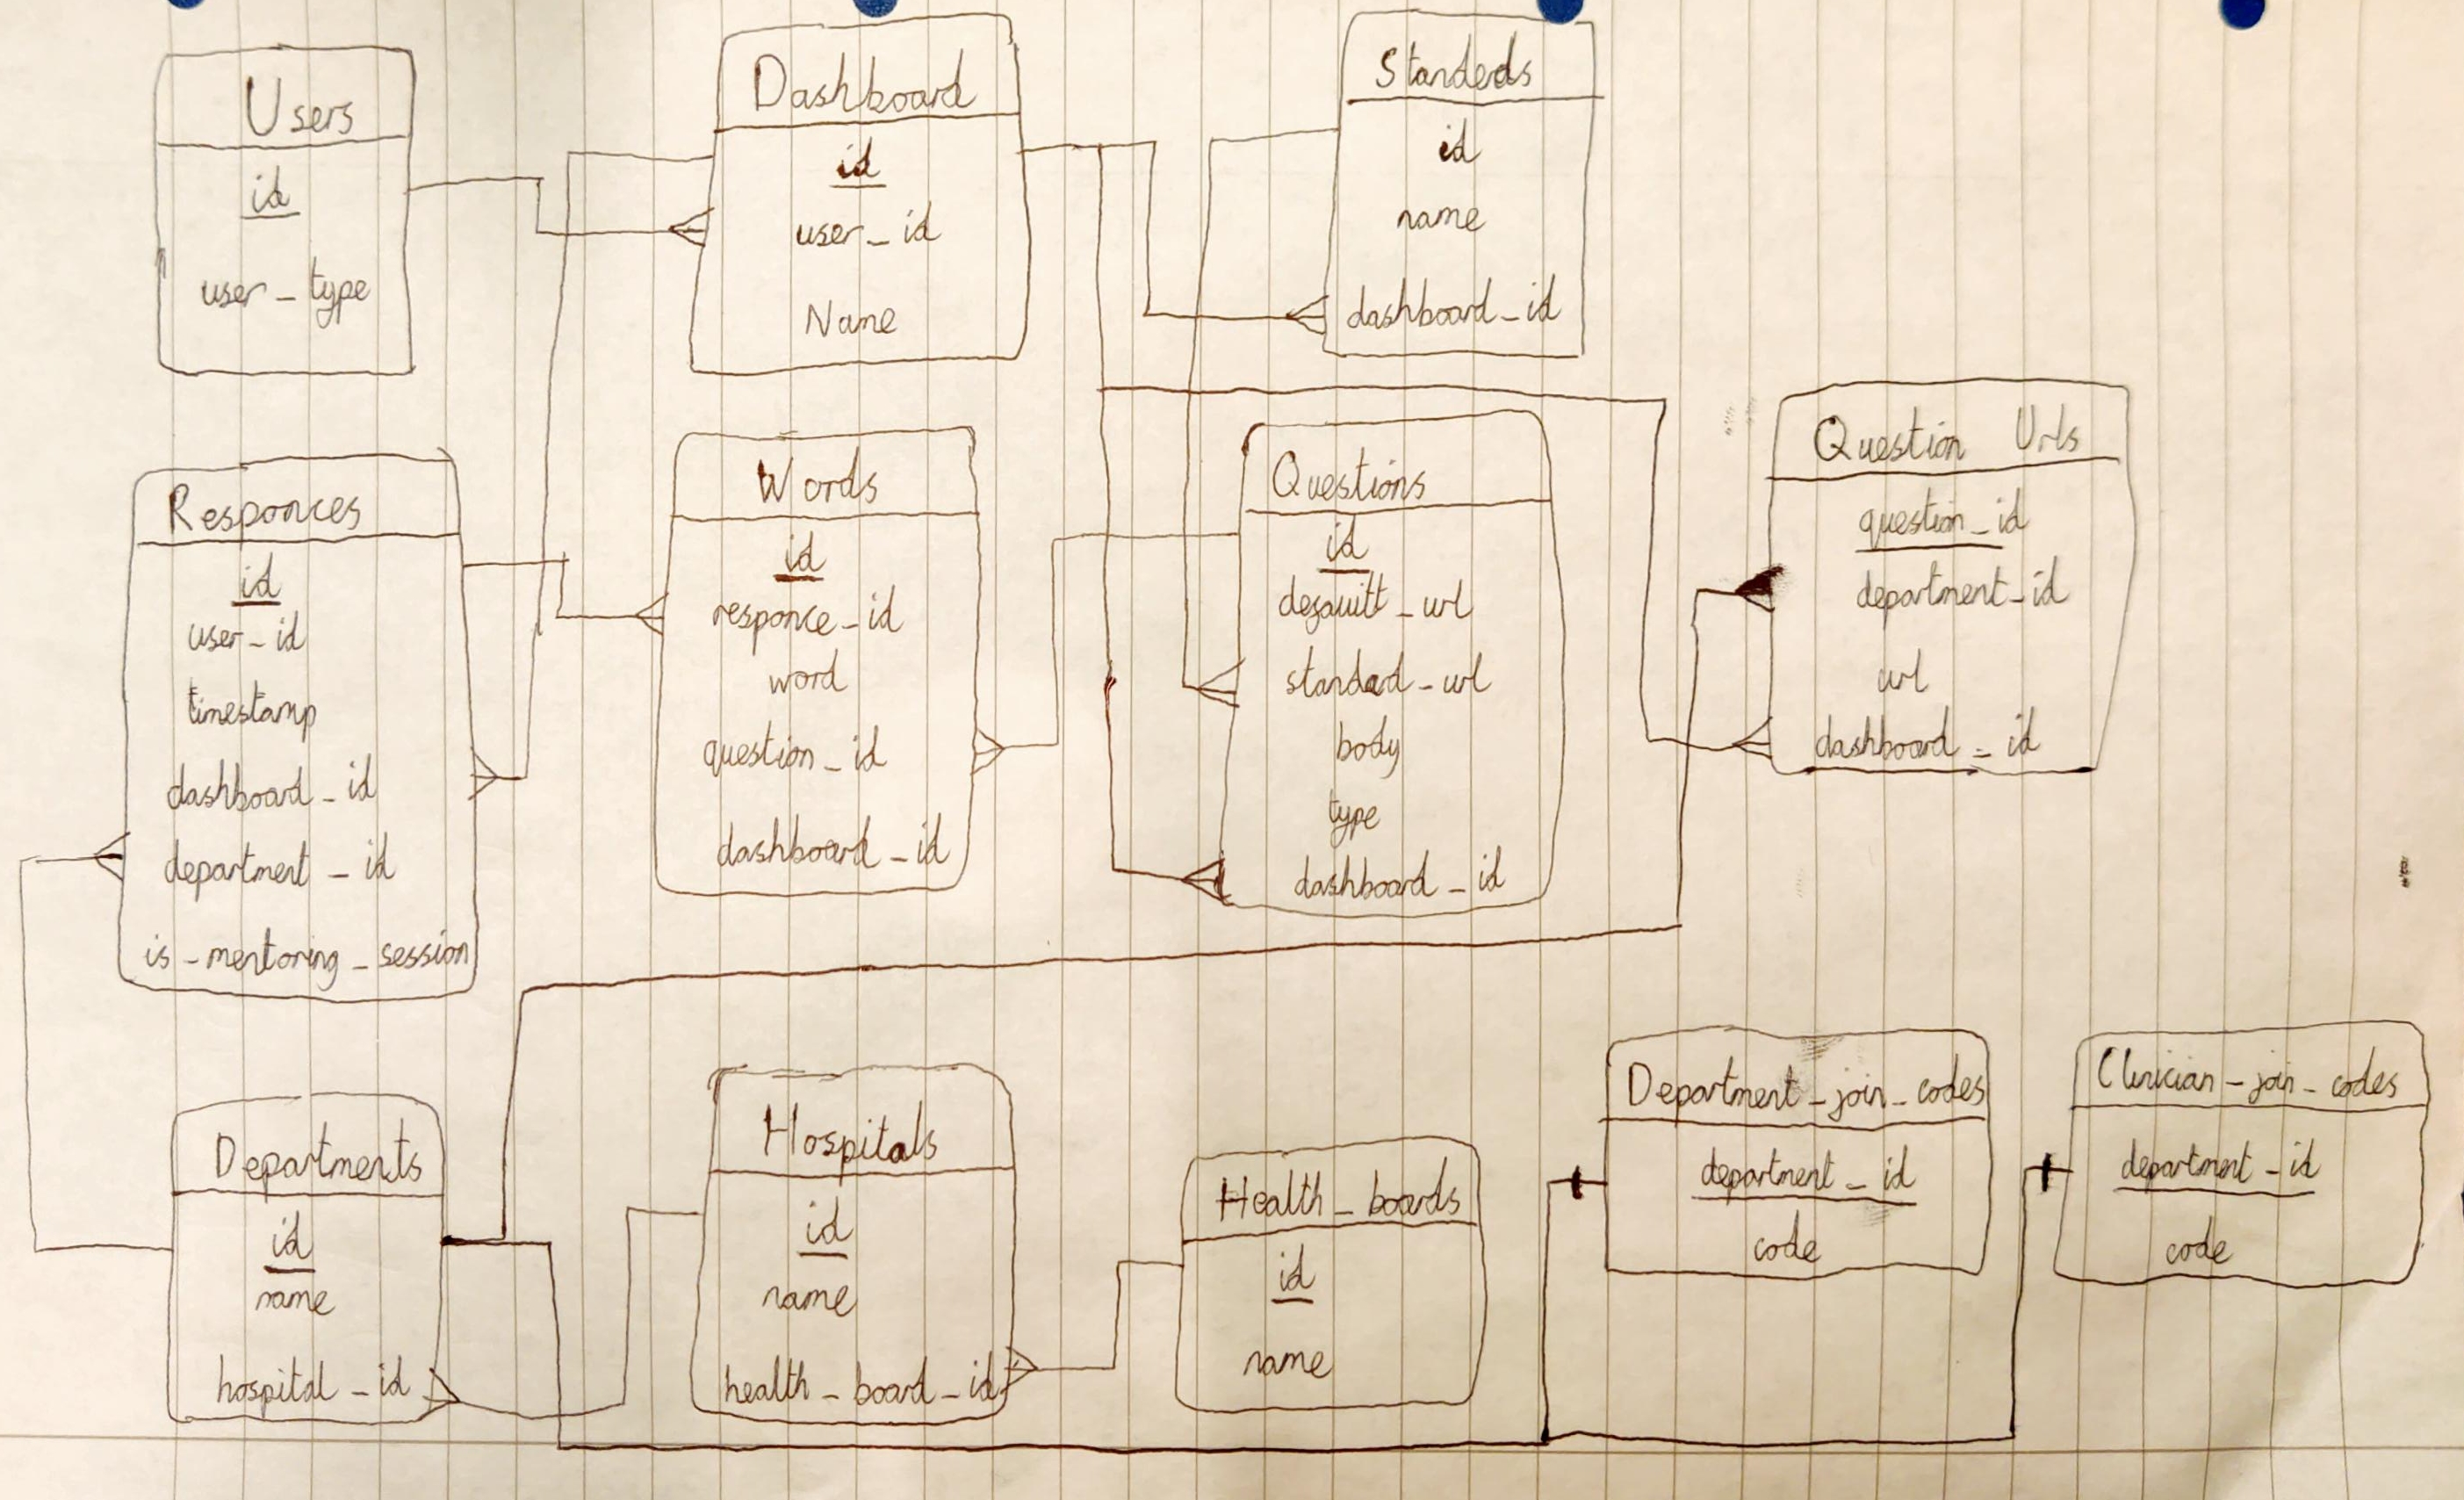 Users
id
user_type
Dashboard
id
user_id
Name
Standerds
id
name
dashboard_id
Responces
id
user_id
timestamp
dashboard_id
department_id
is_mentoring_session
Words
id
responce_id
word
question_id
dashboard_id
Questions
id
defauilt_url
standard_url
body
type
dashboard_id
Question Urls
question_id
department_id
url
dashboard_id
Departments
id
name
hospital_id
Hospitals
id
name
health_board_id
Health_boards
id
name
Department_join_codes
department_id
code
Clinician_join_codes
department_id
code